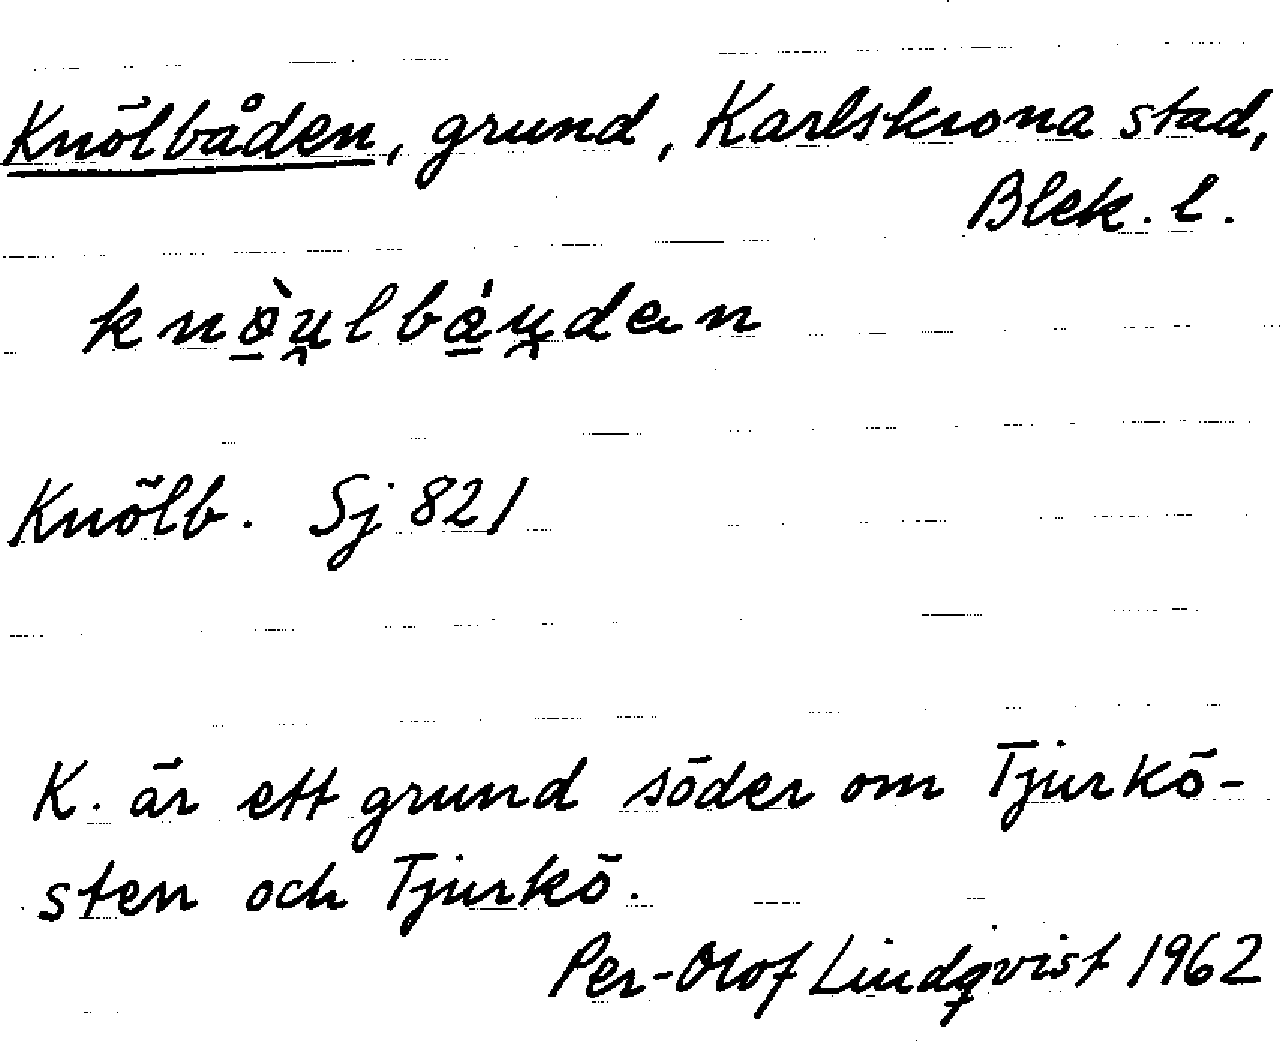 Knölbåden, grund, Karlskrona stad,
Blek. l.
knø̱̀u̯lbá̱u̯dən
Knölb. Sj 821
K. är ett grund söder om Tjurkö-
sten och Tjurkö.
Per-Olof Lindqvist 1962